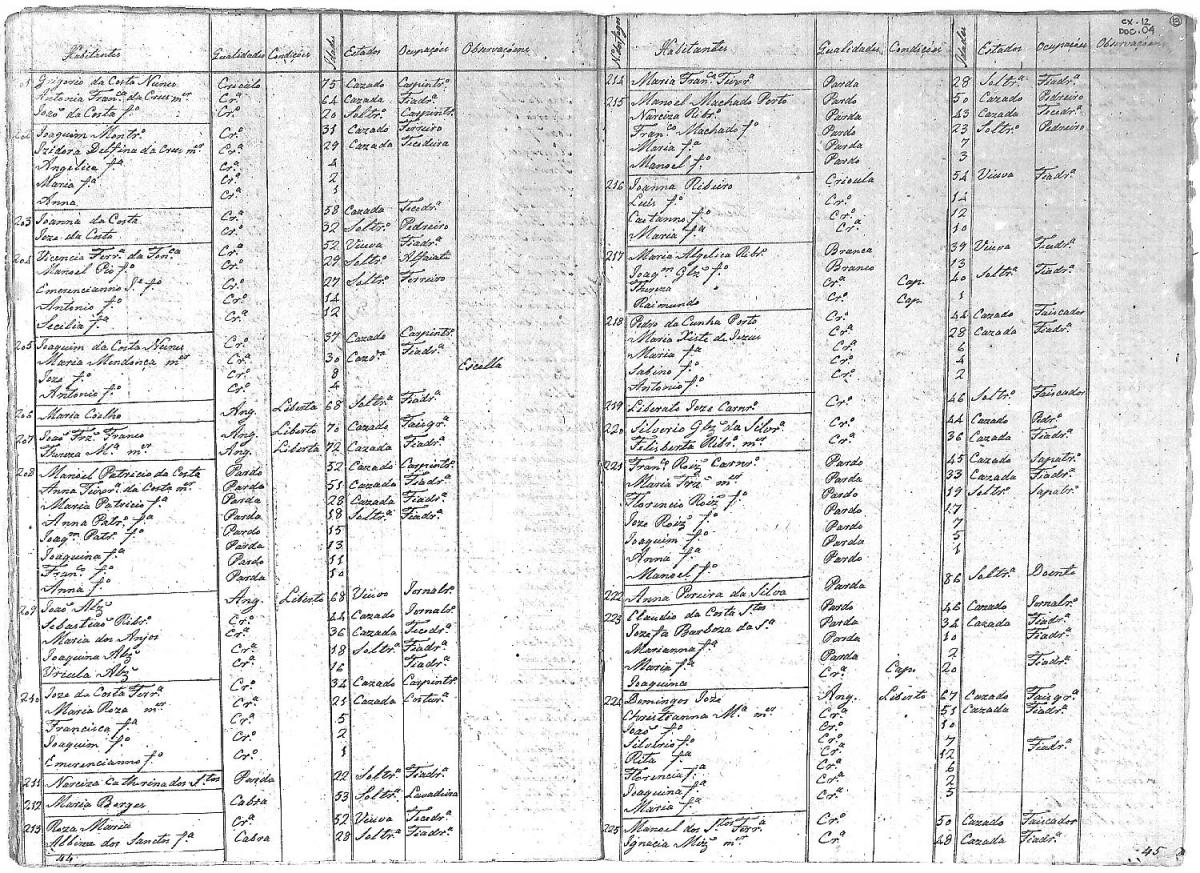 CX.12
DOC.04
13
Habitantes Qualidades Condições Idades Estados Ocupações Observações
201 Grigorio da Costa Nunes Crioulo 75 Cazado Carpintrº
Antonia Franca da Crus mer Crª 64 Cazada Fiadrª
Joaõ da Costa fº Crº 20 Soltrº Carpintrº
202 Joaquim Montrº Crº 31 Cazado Ferreiro
Izidora Delfina da Crus mer Crª 29 Cazada Tecedeira
Angelica fª Crª 4
Maria fª Crª 2
Anna Crª 1
203 Joanna da Costa Crª 58 Cazada Tecedrª
Joze da Costa Crº 52 Soltrº Pedreiro
204 Vicencia Ferrª da Foncª Crª 52 Viuva Fiadrª
Manoel Pio fº Crº 29 Soltrº Alfaiate
Emerencianno Sª fº Crº 27 Soltrº Ferreiro
Antonio fº Crº 14
Secilia fª Crª 12
205 Joaquim da Costa Nunes Crº 37 Cazado Carpintrº
Maria Mendonca mer Crª 30 Cazdª Fiadrª
Joze fº Crº 8 Escolla
Antonio fº Crº 4
206 Maria Coelho Ang. Liberta 68 Soltrª Fiadrª
207 Joaõ Frz Franco Ang. Liberto 70 Cazado Faisqrº
Thereza Mª mer Ang. Liberta 72 Cazada Fiadrª
208 Manoel Patricio da Costa Pardo 52 Cazado Carpintrº
Anna da Costa mer Parda 51 Cazada Fiadrª
Maria Patricio fª Parda 28 Cazada Fiadrª
Anna Patrº fª Parda 18 Soltrª Fiadrª
Joaqm Patrº fº Pardo 15
Joaquina fª Parda 13
Franco fº Pardo 11
Anna fª Parda 10
209 Joaõ Alz Ang. Liberto 68 Viuvo Jornalrº
Sebastiaõ Ribrº Crº 44 Cazado Jornalrº
Maria dos Anjos Crª 36 Cazada Tecedrª
Joaquina Alz Crª 18 Soltrª Fiadrª
Ursula Alz Crª 16 Fiadrª
210 Joze da Costa Ferrª Crº 34 Cazado Carpintrº
Maria Roza mer Crª 21 Cazada Costurª
Francisca fª Crª 5
Joaquim fº Crº 2
Emerencianno fº Crº 1
211 Narciza Catherina dos Stos Parda 22 Soltrª Fiadrª
212 Maria Borges Cabra 53 Soltrª Lavadeira
213 Roza Maria Crª 52 Viuva Tecedrª
Albina dos Sanctos fª Cabra 28 Soltrª Fiadrª
44
Nº dos fogos Habitantes Qualidades Condições Idades Estados Ocupações Observações
214 Maria Franca Parda 28 Soltrª Fiadrª
215 Manoel Machado Porto Pardo 50 Cazado Pedreiro
Narciza Ribrº Parda 43 Cazada Tecedrª
Franco Machado fº Pardo 23 Soltrº Pedreiro
Maria fª Parda 7
Manoel fº Pardo 3
216 Joanna Ribeiro Crioula 54 Viuva Fiadrª
Luis fº Crº 14
Caetanno fº Crº 12
Maria fª Crª 10
217 Maria Algelica Ribrº Branca 39 Viuva Fiadrª
Joaqm Glz fº Branco 13
Thereza Crª Cap. 40 Soltrª Fiadrª
Raimundo Crº Cap. 1
218 Pedro da Cunha Porto Crº 44 Cazado Faiscador
Maria Xiste de Jezus Crª 28 Cazada Fiadrª
Maria fª Crª 6
Sabino fº Crº 4
Antonio fº Crº 2
219 Liberato Joze Carnrº Crº 46 Soltrº Faiscador
220 Silverio Glz da Silvª Crº 44 Cazado Pedrº
Felisberta Ribrº mer Crª 36 Cazada Fiadrª
221 Franco Roiz Carnrº Pardo 45 Cazado Sapatrº
Maria Frz mer Parda 33 Cazada Fiadrª
Florencio Roiz fº Pardo 19 Soltrº Sapatrº
Joze Roiz fº Pardo 17
Joaquim fº Pardo 7
Anna fª Parda 5
Manoel fº Pardo 1
222 Anna Pereira da Silva Parda 86 Soltrª Doente
223 Claudio da Costa Stos Pardo 46 Cazado Jornalrº
Jozefa Barboza da Sª Parda 34 Cazada Fiadrª
Marianna fª Parda 10 Fiadrª
Maria fª Parda 2
Joaquina Crª Cap. 20 Fiadrª
224 Domingos Joze Ang. Liberto 67 Cazado Faisqrº
Christoanna Mª mer Crª 51 Cazada Fiadrª
Joaõ fº Crº 10
Silvério fº Crº 7
Rita fª Crª 12 Fiadrª
Florencia fª Crª 6
Joaquina fª Crª 2
Maria fª Crª 5
225 Manoel dos Stos Ferrª Crº 50 Cazado Faiscador
Ignacia Miz mer Crª 48 Cazada Fiadrª
45